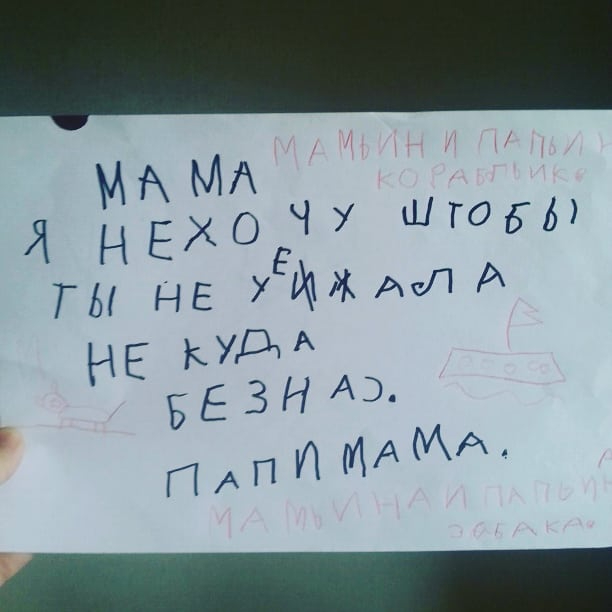 МАМЬИН И ПАПЬИН
КОРАБЛЬИК.
МАМА
Я НЕХОЧУ ШТОБЫ
ТЫ НЕ УЕЖАЛА
НЕ КУДА
БЕЗНАС.
ПАПИМАМА.
МАМЬИНА И ПАПЬИНА
ЗАБАКА.